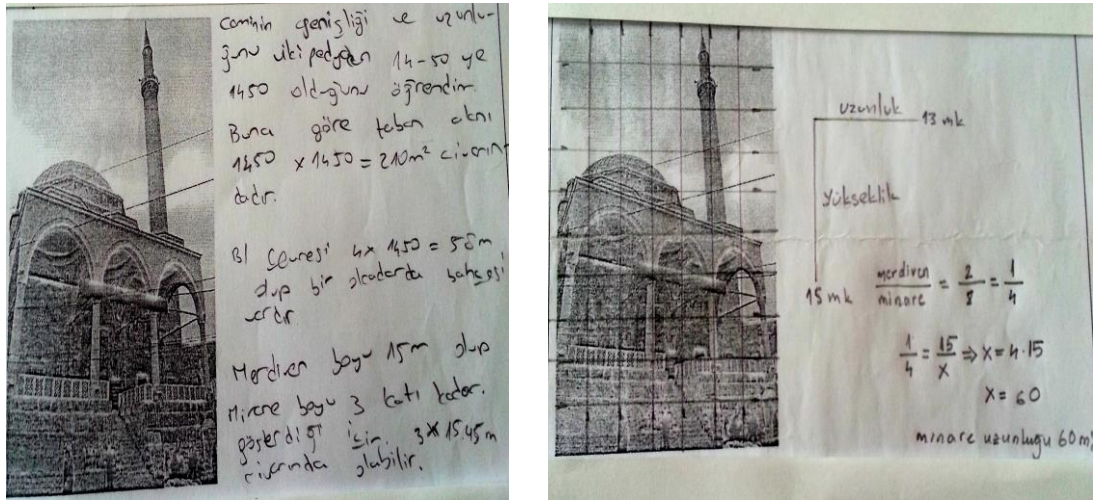 caminin genişliği ve uzunlu-
ğunu vikipedyadan 14-50 ye
1450 olduğunu öğrendim.
Buna göre taban alanı
1450 x 1450 = 210m² civarın-
dadır.
B) Çevresi 4x 1450 = 58m
olup bir okadarda bahçesi
vardır
Merdiven boyu 15m olup
Minare boyu 3 katı kadar.
gösterdiği için. 3x15.45m
civarında olabilir.
uzunluk
13 mk
Yükseklik
15 mk
merdiven/minare = 2/8 = 1/4
1/4 = 15/x ⇒ x = 4·15
x = 60
minare uzunluğu 60 m